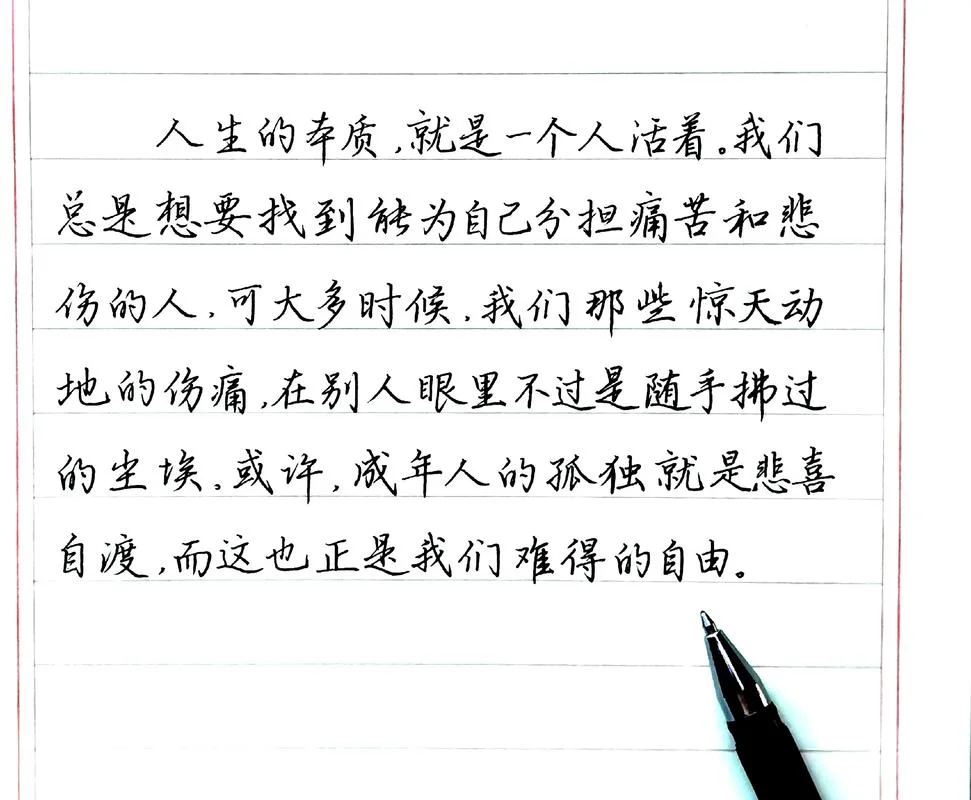 人生的本质,就是一个人活着。我们
总是想要找到能为自己分担痛苦和悲
伤的人,可大多时候,我们那些惊天动
地的伤痛,在别人眼里不过是随手拂过
的尘埃。或许,成年人的孤独就是悲喜
自渡,而这也正是我们难得的自由。